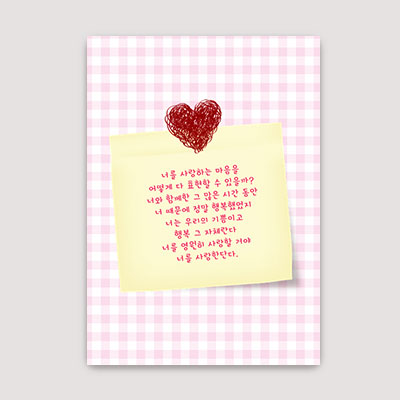 너를 사랑하는 마음을
어떻게 다 표현할 수 있을까?
너와 함께한 그 많은 시간 동안
너 때문에 정말 행복했었지
너는 우리의 기쁨이고
행복 그 자체란다
너를 영원히 사랑할 거야
너를 사랑한단다.